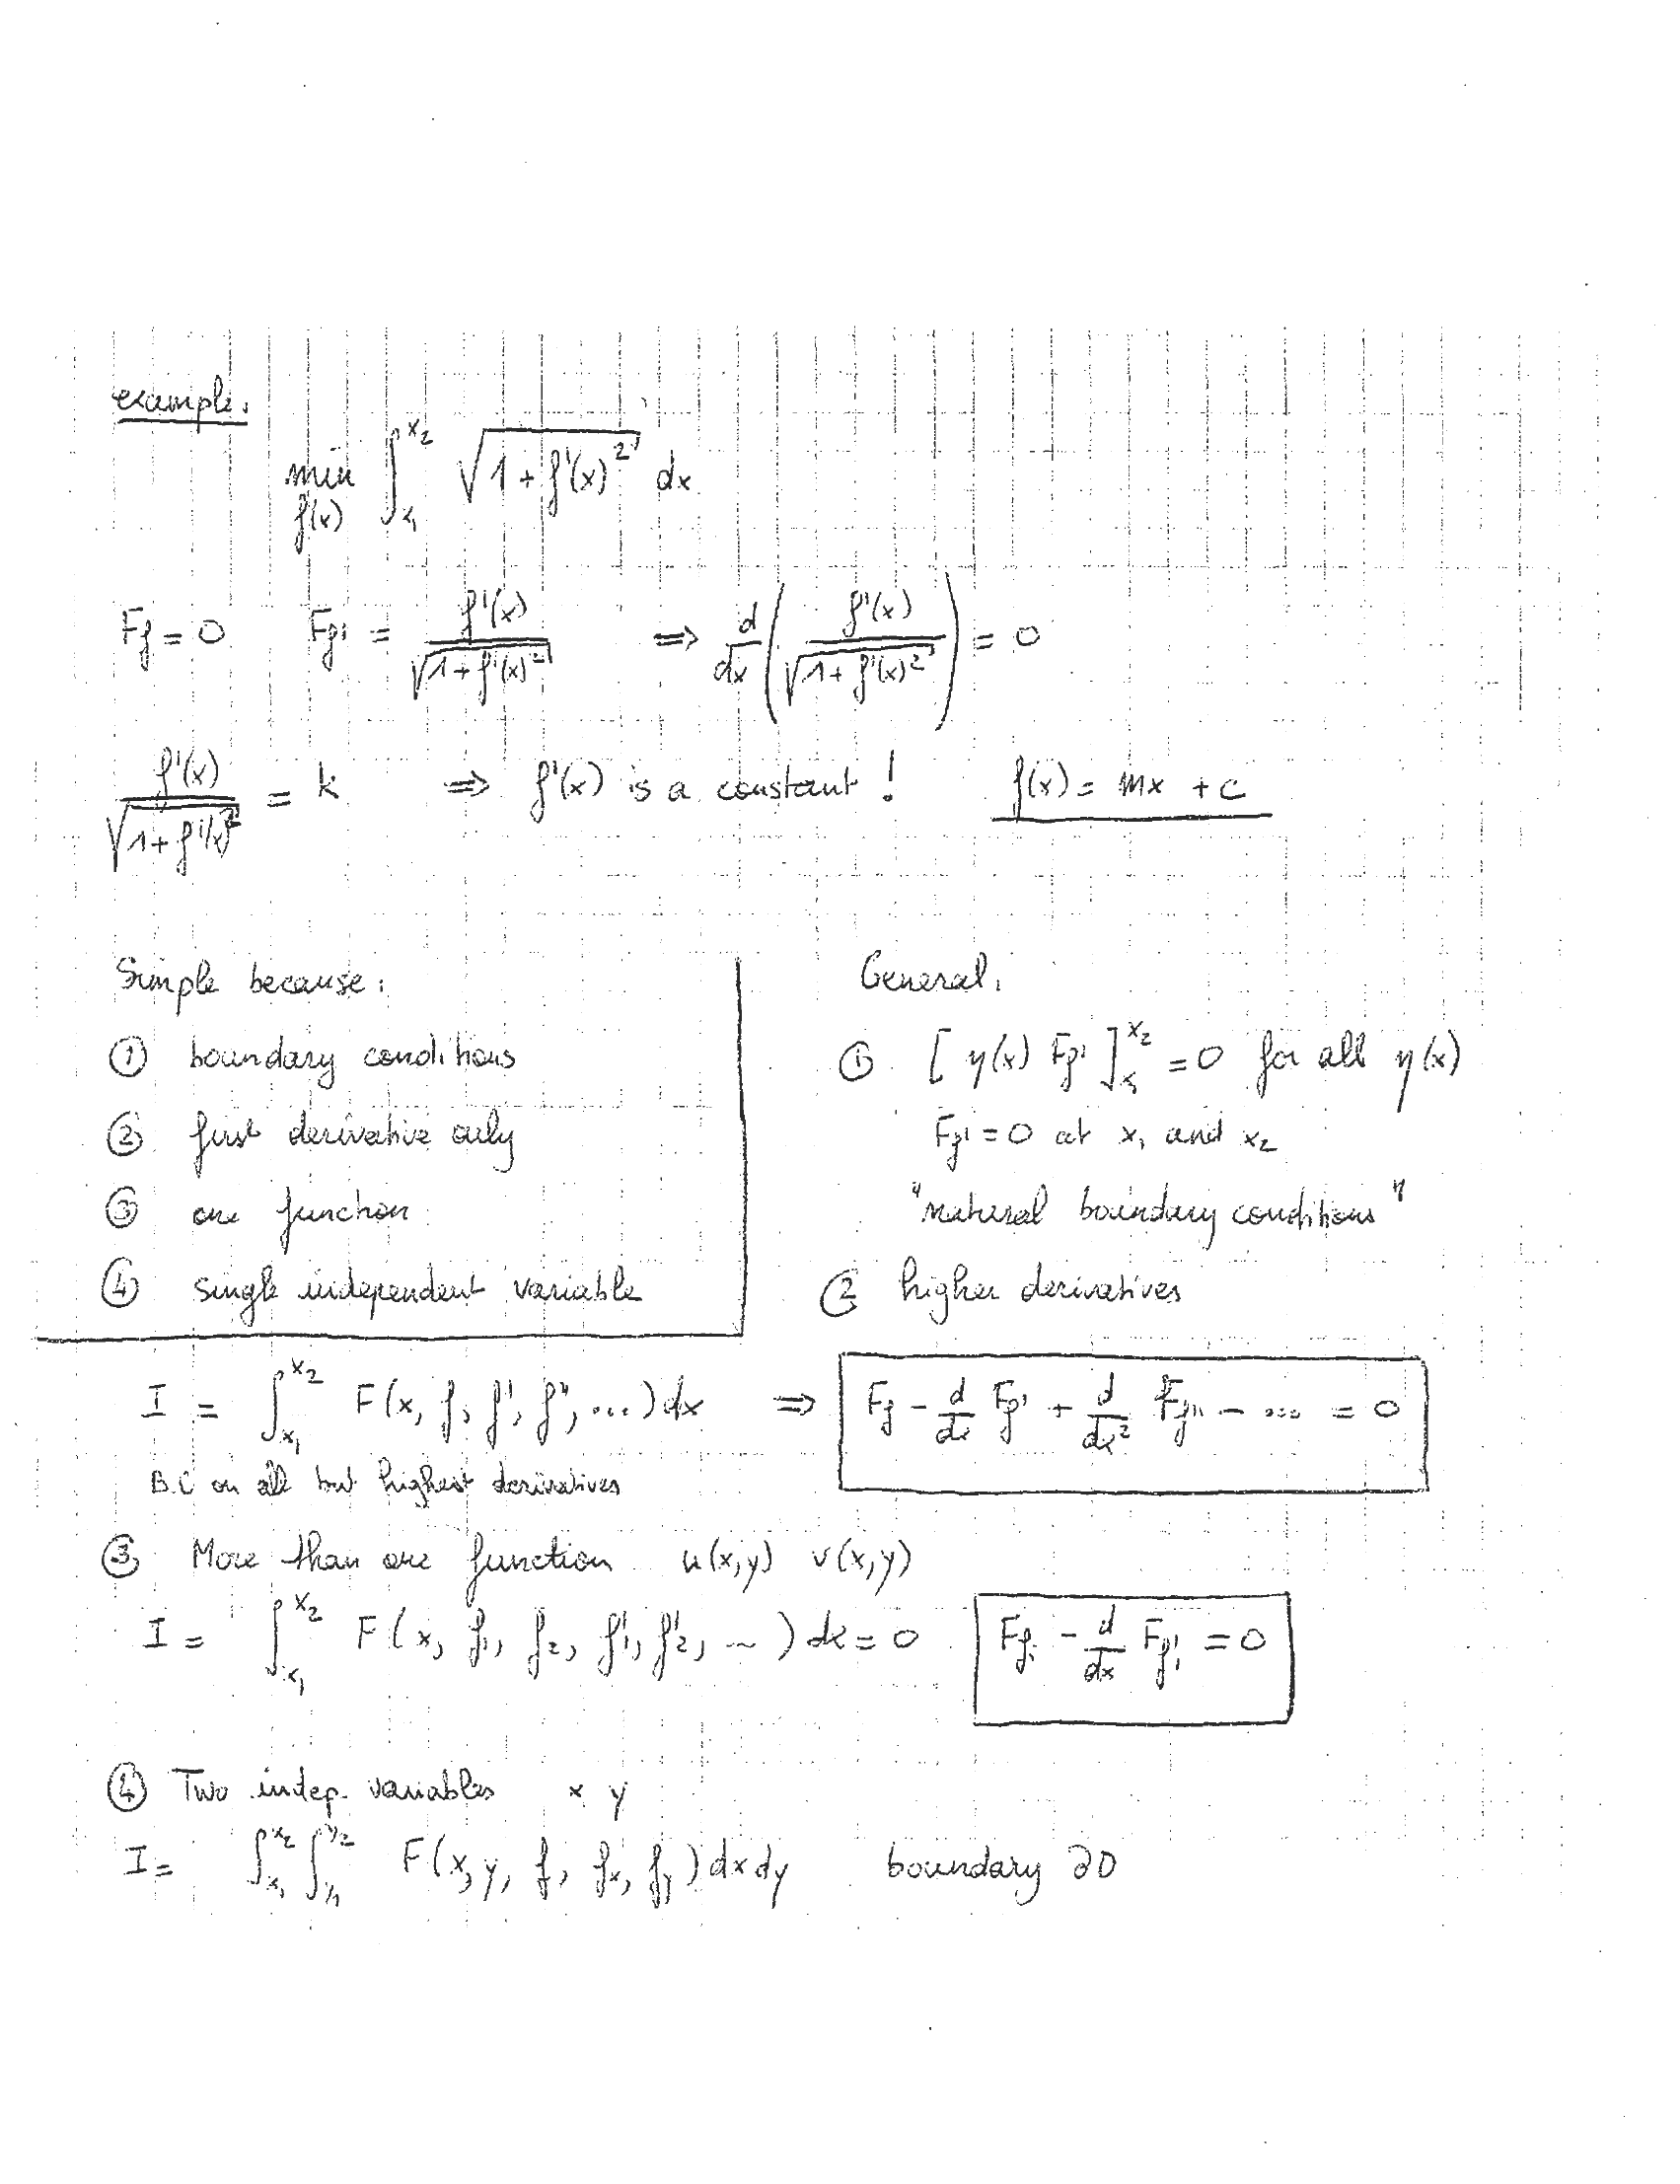 example:
min ∫_{x₁}^{x₂} √(1 + f'(x)²) dx
f(x)
F_f = 0   F_f' = f'(x) / √(1 + f'(x)²)   ⇒ d/dx ( f'(x) / √(1 + f'(x)²) ) = 0
f'(x) / √(1 + f'(x)²) = k   ⇒ f'(x) is a constant !   f(x) = mx + c
Simple because:
① boundary conditions
② first derivative only
③ one function
④ single independent variable
General:
① [ η(x) F_f' ]_{x₁}^{x₂} = 0 for all η(x)
F_f' = 0 at x₁ and x₂
"natural boundary conditions"
② higher derivatives
I = ∫_{x₁}^{x₂} F(x, f, f', f'', ...) dx   ⇒ F_f - d/dx F_f' + d/dx² F_f'' - .... = 0
B.C on all but highest derivatives
③ More than one function u(x,y) v(x,y)
I = ∫_{x₁}^{x₂} F(x, f₁, f₂, f₁', f₂', ...) dx = 0   F_{f_i} - d/dx F_{f_i'} = 0
④ Two indep. variables x y
I = ∫_{x₁}^{x₂} ∫_{y₁}^{y₂} F(x, y, f, f_x, f_y) dx dy   boundary ∂D